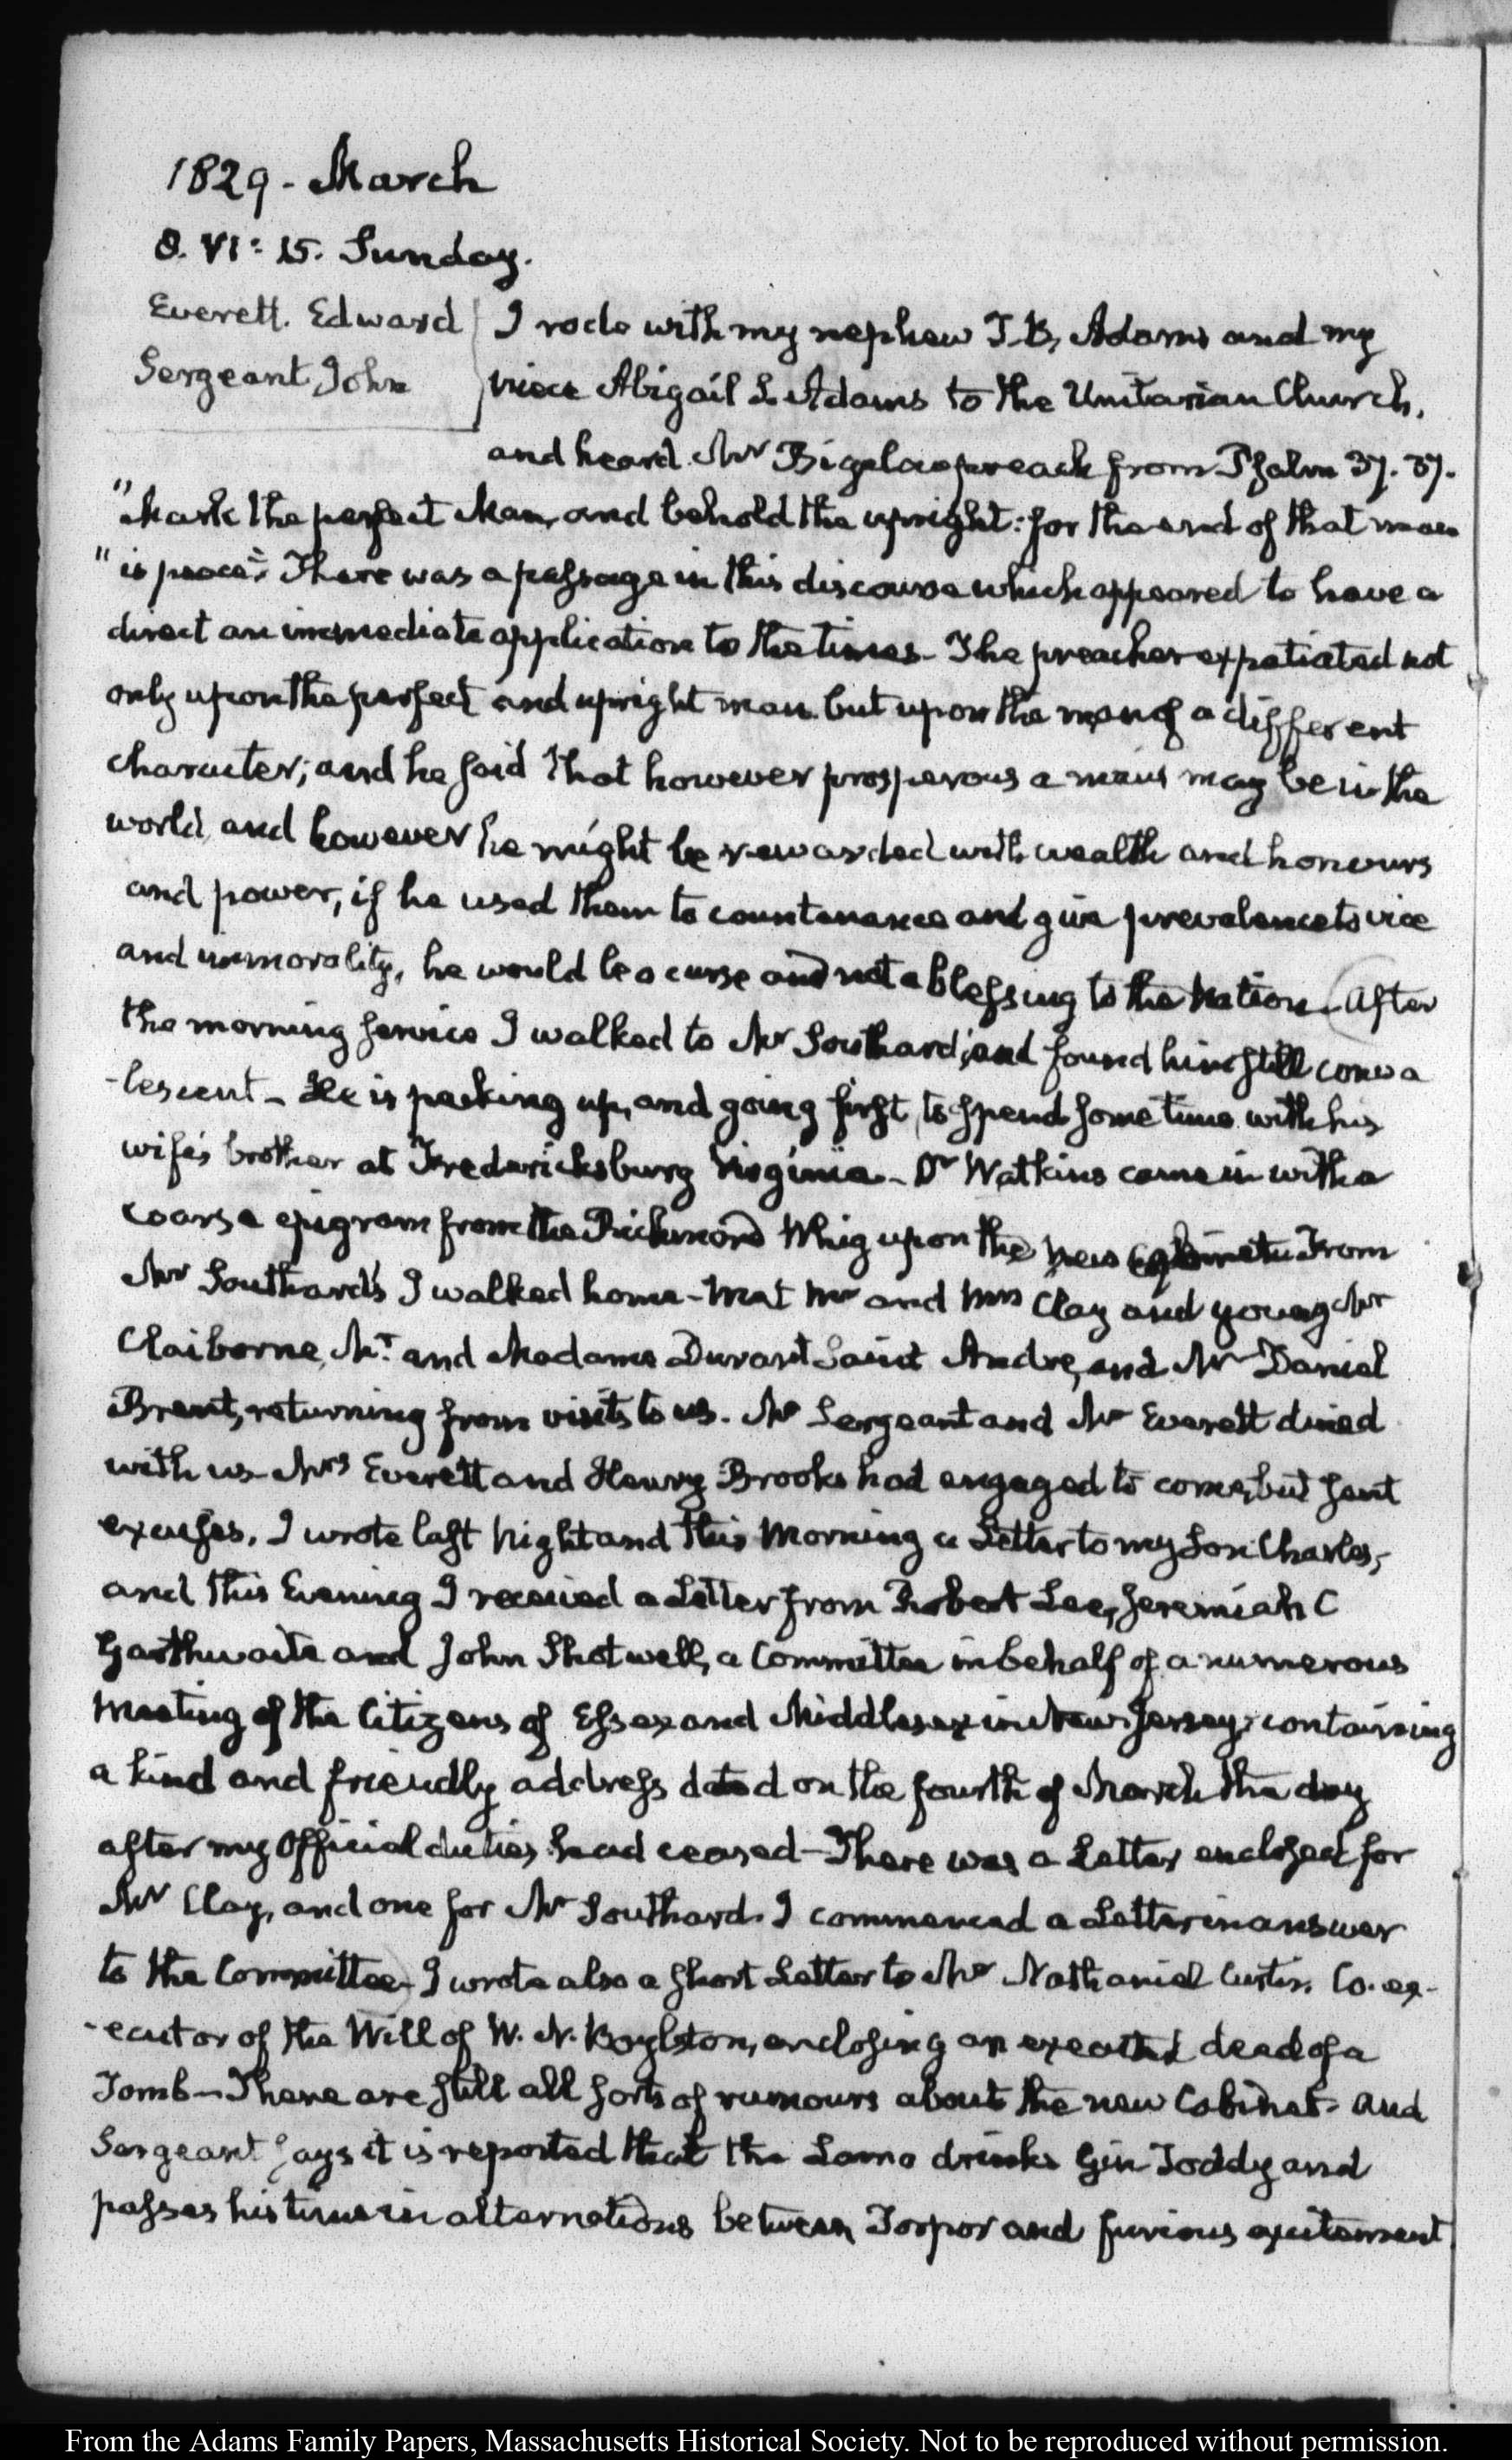 1829 - March
8. VI: 15. Sunday.
Everett. Edward
Sergeant John
I rode with my nephew T. B. Adams and my
niece Abigail S. Adams to the Unitarian Church,
and heard Mr Bigelow preach from Psalm 37. 37.
"Mark the perfect Man, and behold the upright: for the end of that man
"is peace". There was a passage in this discourse which appeared to have a
direct an immediate application to the times - The preacher expatiated not
only upon the perfect and upright man but upon the man of a different
character; and he said that however prosperous a man may be in the
world, and however he might be rewarded with wealth and honours
and power, if he used them to countenance and give prevalence to vice
and immorality, he would be a curse and not a blessing to the Nation - After
the morning service I walked to Mr Southard's, and found him still conva
-lescent - He is packing up, and going first, to spend some time with his
wife's brother at Fredericksburg Virginia - Dr Watkins came in with a
coarse epigram from the Richmond Whig upon the new Cabinet. From
Mr Southard's I walked home - Met Mr and Mrs Clay and young Mr
Claiborne, Mr. and Madame Durant Saint Andre, and Mr Daniel
Brent, returning from visits to us. Mr Sergeant and Mr Everett dined
with us - Mrs Everett and Henry Brooks had engaged to come, but sent
excuses. I wrote last Night and this Morning a Letter to my Son Charles,
and this Evening I received a Letter from Robert Lee, Jeremiah C
Garthwaite and John Shotwell, a Committee in behalf of a numerous
Meeting of the Citizens of Essex and Middlesex in New-Jersey, containing
a kind and friendly address dated on the fourth of March the day
after my Official duties had ceased - There was a Letter enclosed for
Mr Clay, and one for Mr Southard. I commenced a Letter in answer
to the Committee - I wrote also a short Letter to Mr Nathaniel Curtis, Co. ex-
-ecutor of the Will of W. N. Boylston, enclosing an executed deed of a
Tomb - There are still all sorts of rumours about the new Cabinet - and
Sergeant says it is reported that the Lama drinks Gin Toddy and
passes his time in alternations between Torpor and furious excitement
From the Adams Family Papers, Massachusetts Historical Society. Not to be reproduced without permission.